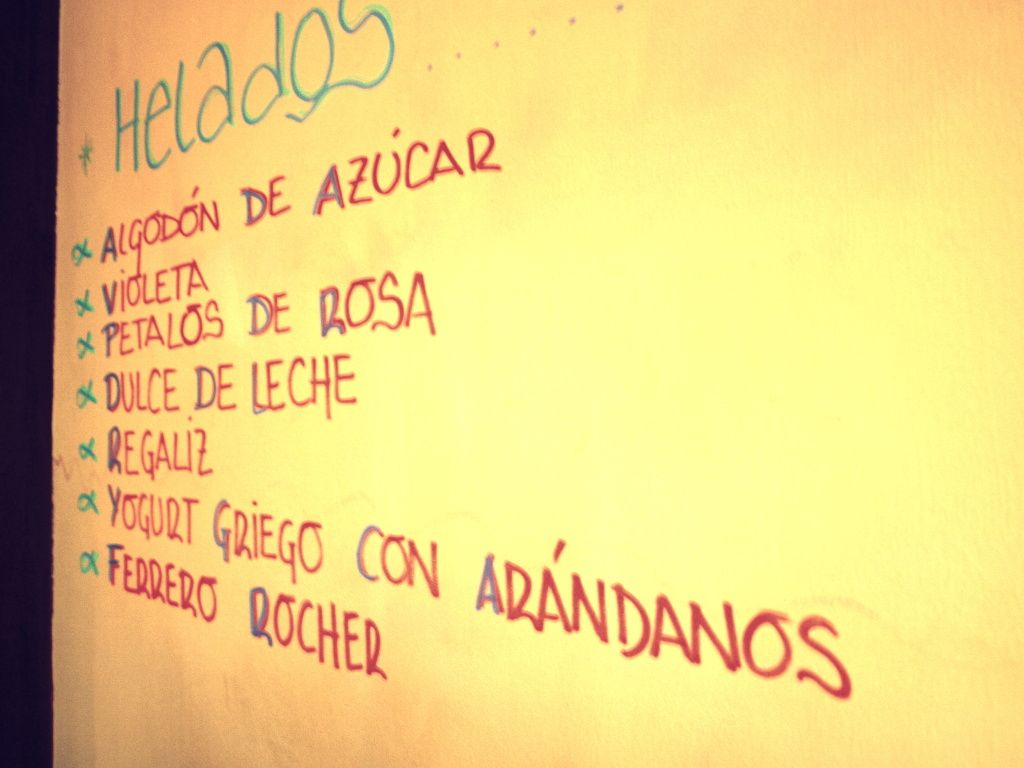 * Helados.......
∝ ALGODÓN DE AZÚCAR
∝ VIOLETA
∝ PETALOS DE ROSA
∝ DULCE DE LECHE
∝ REGALIZ
∝ YOGURT GRIEGO CON ARÁNDANOS
∝ FERRERO ROCHER